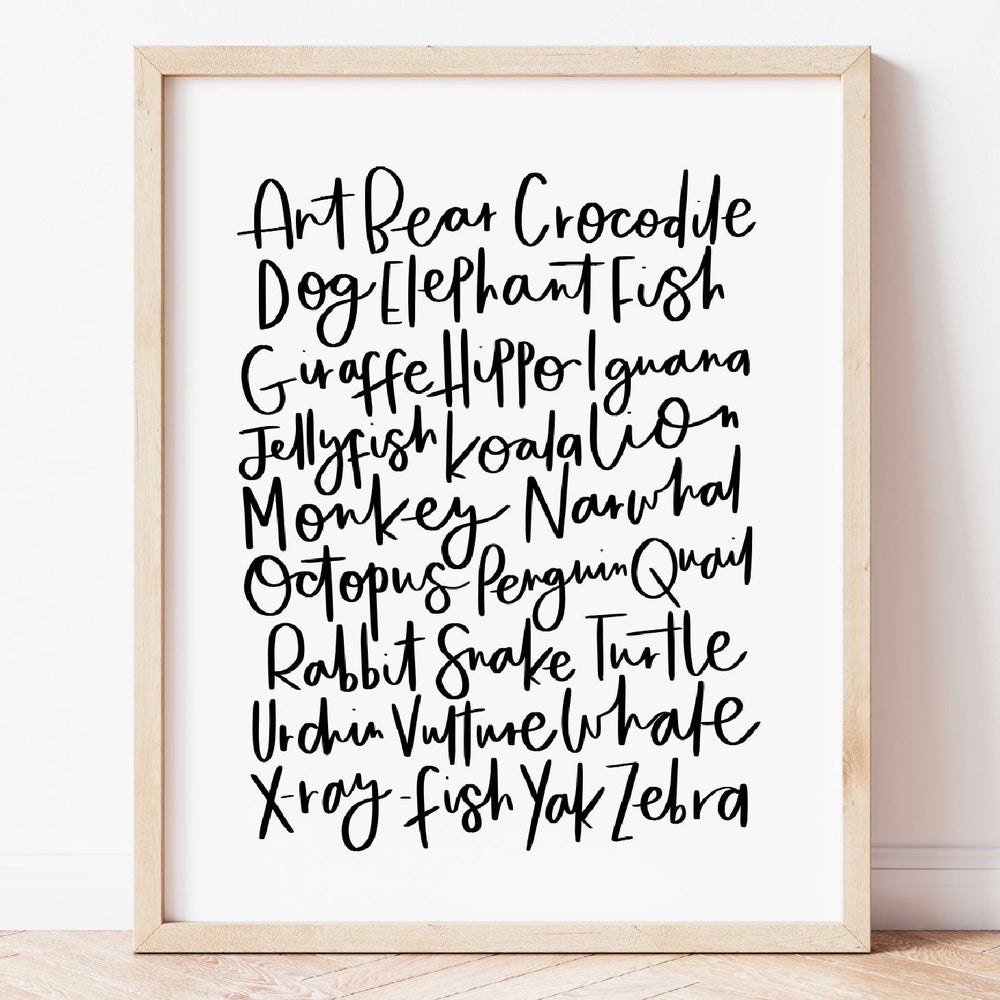 Ant Bear Crocodile
Dog Elephant Fish
Giraffe Hippo Iguana
Jellyfish Koala Lion
Monkey Narwhal
Octopus Penguin Quail
Rabbit Snake Turtle
Urchin Vulture Whale
X-ray-fish Yak Zebra